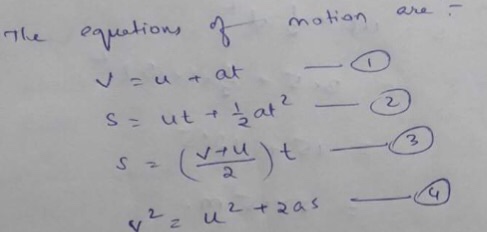 The equations of motion are :-
v = u + at — ①
s = ut + ½at² — ②
s = (v+u/2) t — ③
v² = u² + 2as — ④